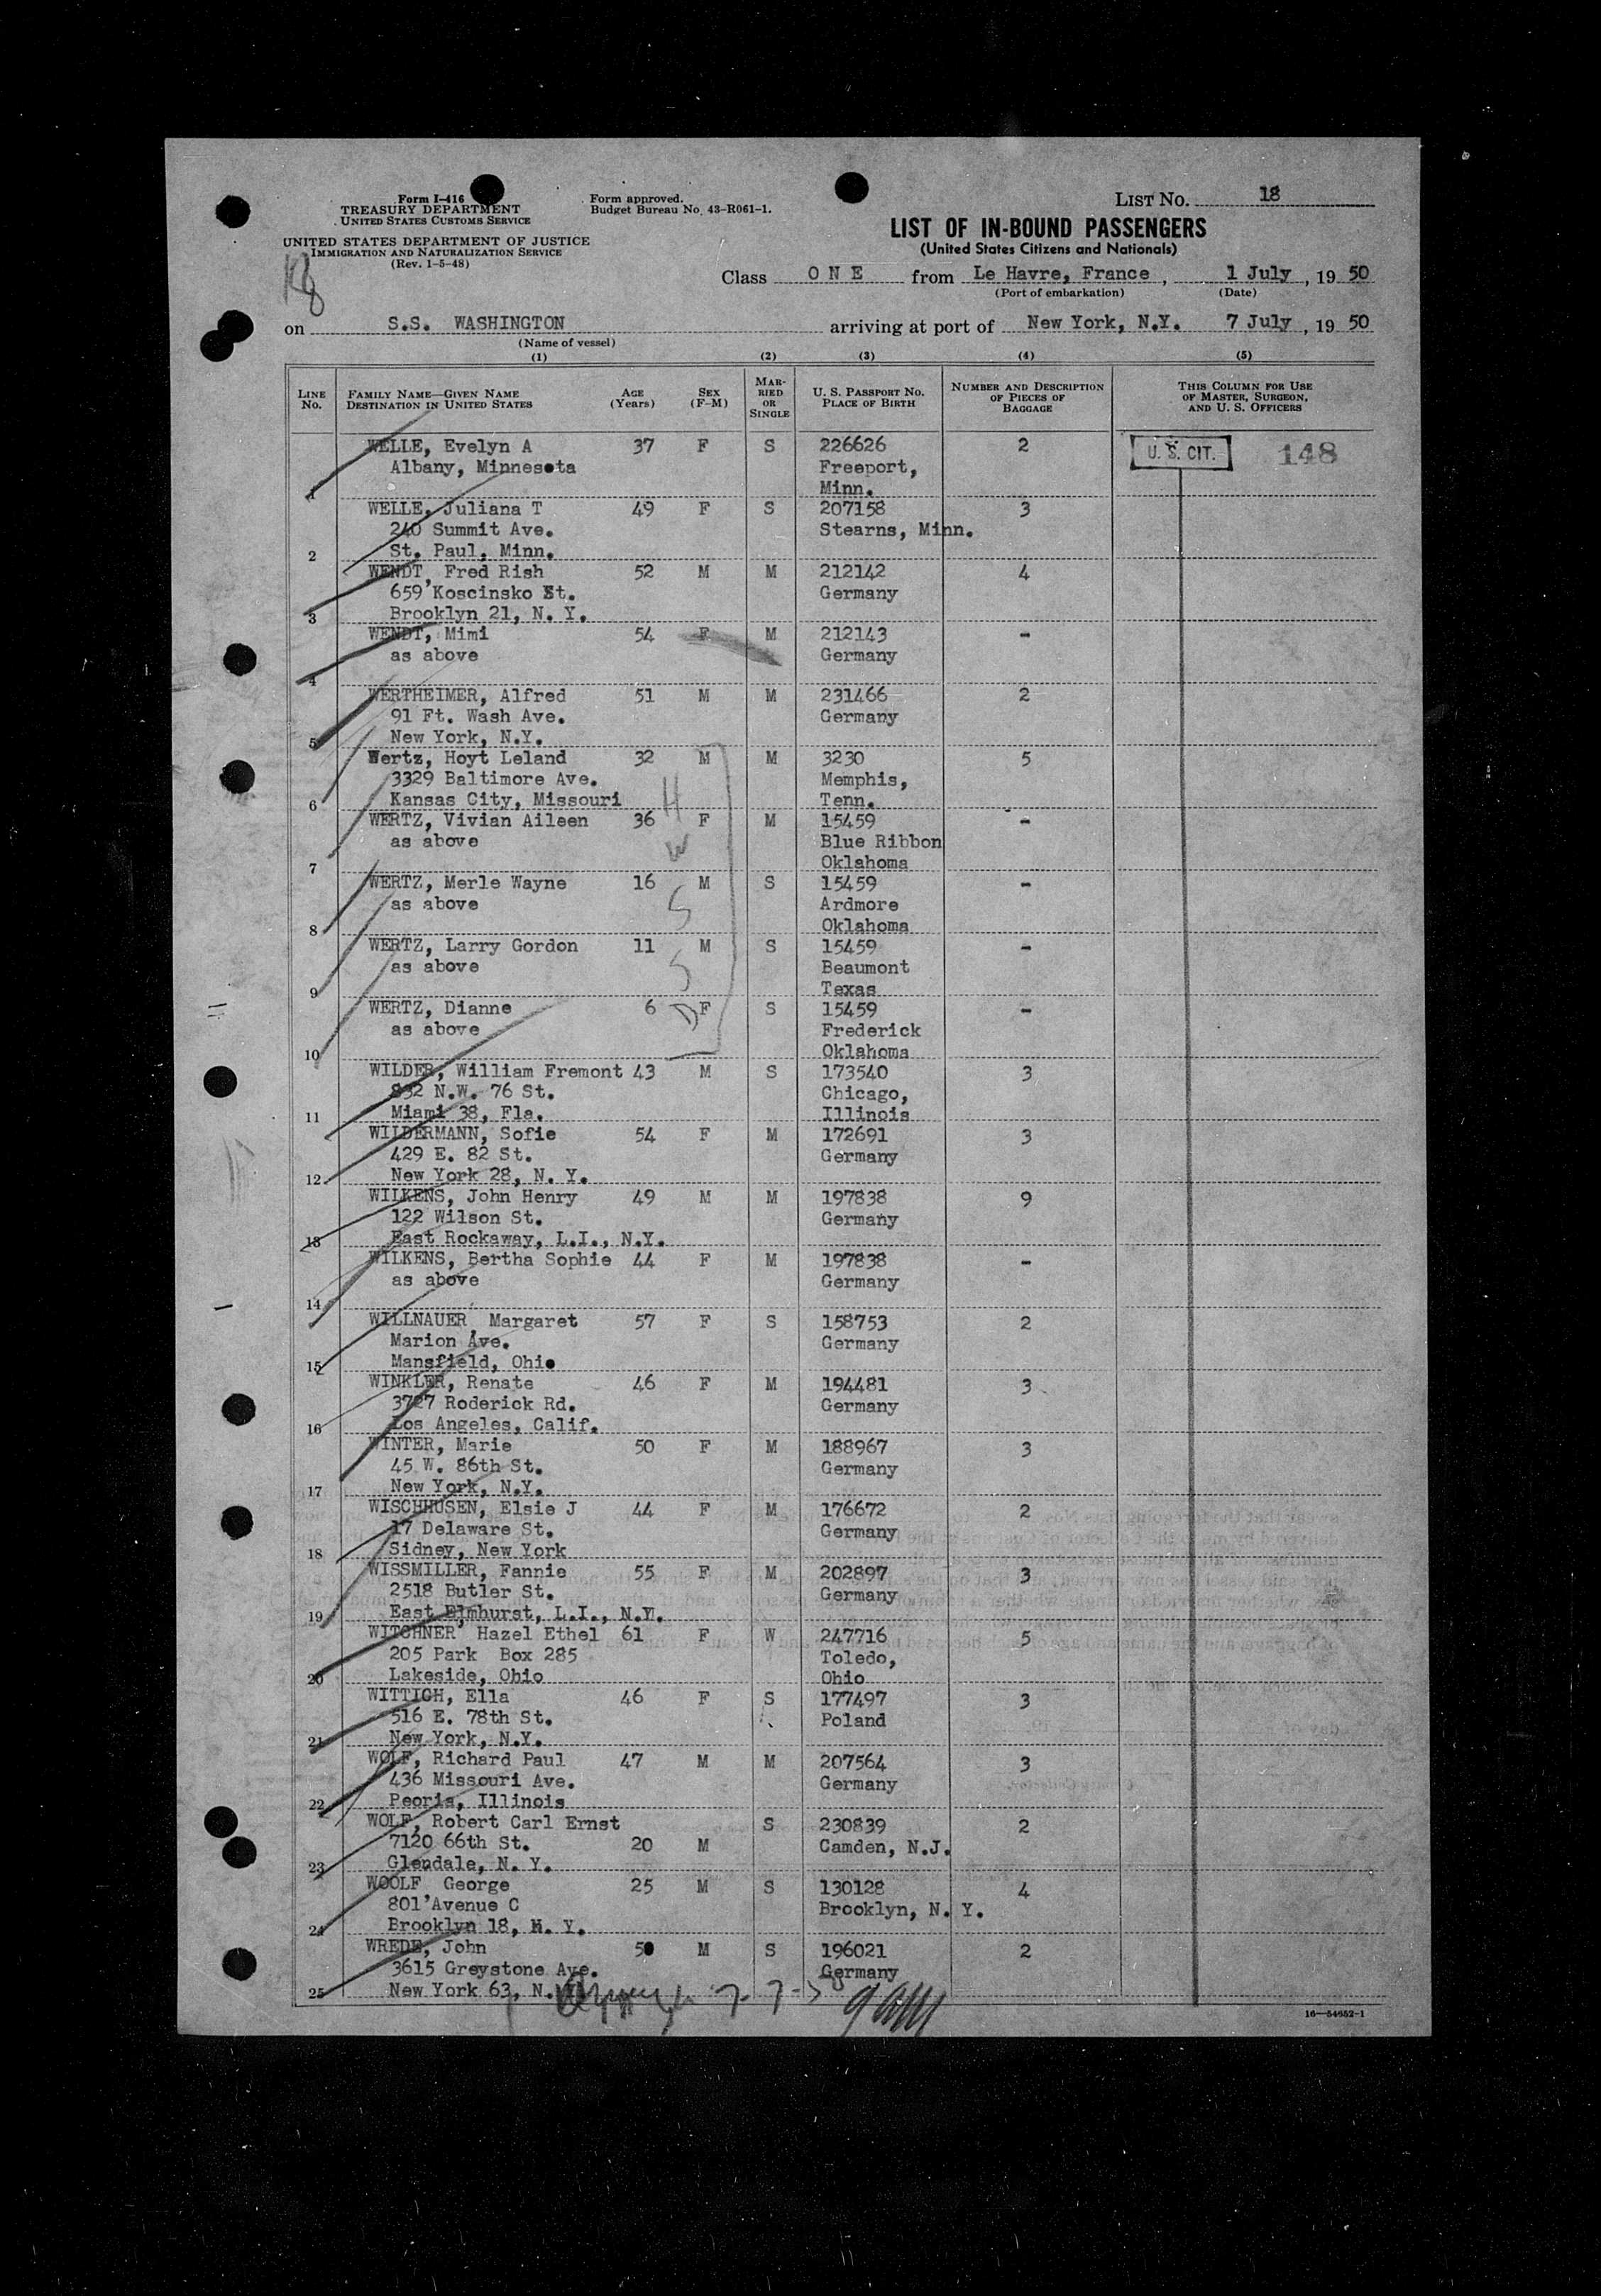 Form I-416
TREASURY DEPARTMENT
UNITED STATES CUSTOMS SERVICE
UNITED STATES DEPARTMENT OF JUSTICE
IMMIGRATION AND NATURALIZATION SERVICE
(Rev. 1-5-48)
Form approved.
Budget Bureau No. 43-R061-1.
LIST NO. 18
LIST OF IN-BOUND PASSENGERS
(United States Citizens and Nationals)
Class O N E from Le Havre, France, 1 July, 19 50
(Port of embarkation) (Date)
on S.S. WASHINGTON arriving at port of New York, N.Y. 7 July, 19 50
(Name of vessel)
(1) (2) (3) (4) (5)
LINE No. FAMILY NAME—GIVEN NAME DESTINATION IN UNITED STATES AGE (Years) SEX (F-M) MARRIED OR SINGLE U. S. PASSPORT NO. PLACE OF BIRTH NUMBER AND DESCRIPTION OF PIECES OF BAGGAGE THIS COLUMN FOR USE OF MASTER, SURGEON, AND U. S. OFFICERS
WELLE, Evelyn A 37 F S 226626 2 U. S. CIT. 148
Albany, Minnesota Freeport,
1 Minn.
WELLE, Juliana T 49 F S 207158 3
240 Summit Ave. Stearns, Minn.
2 St. Paul, Minn.
WENDT, Fred Rish 52 M M 212142 4
659 Koscinsko St. Germany
3 Brooklyn 21, N. Y.
WENDT, Mimi 54 F M 212143 -
as above Germany
4
WERTHEIMER, Alfred 51 M M 231466 2
91 Ft. Wash Ave. Germany
5 New York, N.Y.
Wertz, Hoyt Leland 32 M M 3230 5
3329 Baltimore Ave. Memphis,
6 Kansas City, Missouri H Tenn.
WERTZ, Vivian Aileen 36 F M 15459 -
as above W Blue Ribbon
7 Oklahoma
WERTZ, Merle Wayne 16 M S 15459 -
as above S Ardmore
8 Oklahoma
WERTZ, Larry Gordon 11 M S 15459 -
as above S Beaumont
9 Texas
WERTZ, Dianne 6 D F S 15459 -
as above Frederick
10 Oklahoma
WILDER, William Fremont 43 M S 173540 3
832 N.W. 76 St. Chicago,
11 Miami 38, Fla. Illinois
WILDERMANN, Sofie 54 F M 172691 3
429 E. 82 St. Germany
12 New York 28, N. Y.
WILKENS, John Henry 49 M M 197838 9
122 Wilson St. Germany
13 East Rockaway, L.I., N.Y.
WILKENS, Bertha Sophie 44 F M 197838 -
as above Germany
14
WILLNAUER, Margaret 57 F S 158753 2
Marion Ave. Germany
15 Mansfield, Ohio
WINKLER, Renate 46 F M 194481 3
3727 Roderick Rd. Germany
16 Los Angeles, Calif.
WINTER, Marie 50 F M 188967 3
45 W. 86th St. Germany
17 New York, N.Y.
WISCHHUSEN, Elsie J 44 F M 176672 2
17 Delaware St. Germany
18 Sidney, New York
WISSMILLER, Fannie 55 F M 202897 3
2518 Butler St. Germany
19 East Elmhurst, L.I., N.Y.
WITCHNER, Hazel Ethel 61 F W 247716 5
205 Park Box 285 Toledo,
20 Lakeside, Ohio Ohio
WITTIGH, Ella 46 F S 177497 3
516 E. 78th St. Poland
21 New York, N.Y.
WOLF, Richard Paul 47 M M 207564 3
436 Missouri Ave. Germany
22 Peoria, Illinois
WOLF, Robert Carl Ernst S 230839 2
7120 66th St. 20 M Camden, N.J.
23 Glendale, N. Y.
WOOLF, George 25 M S 130128 4
801 Avenue C Brooklyn, N. Y.
24 Brooklyn 18, N. Y.
WREDE, John 50 M S 196021 2
3615 Greystone Ave. Germany
25 New York 63, N.
7-7-50
16—54652-1